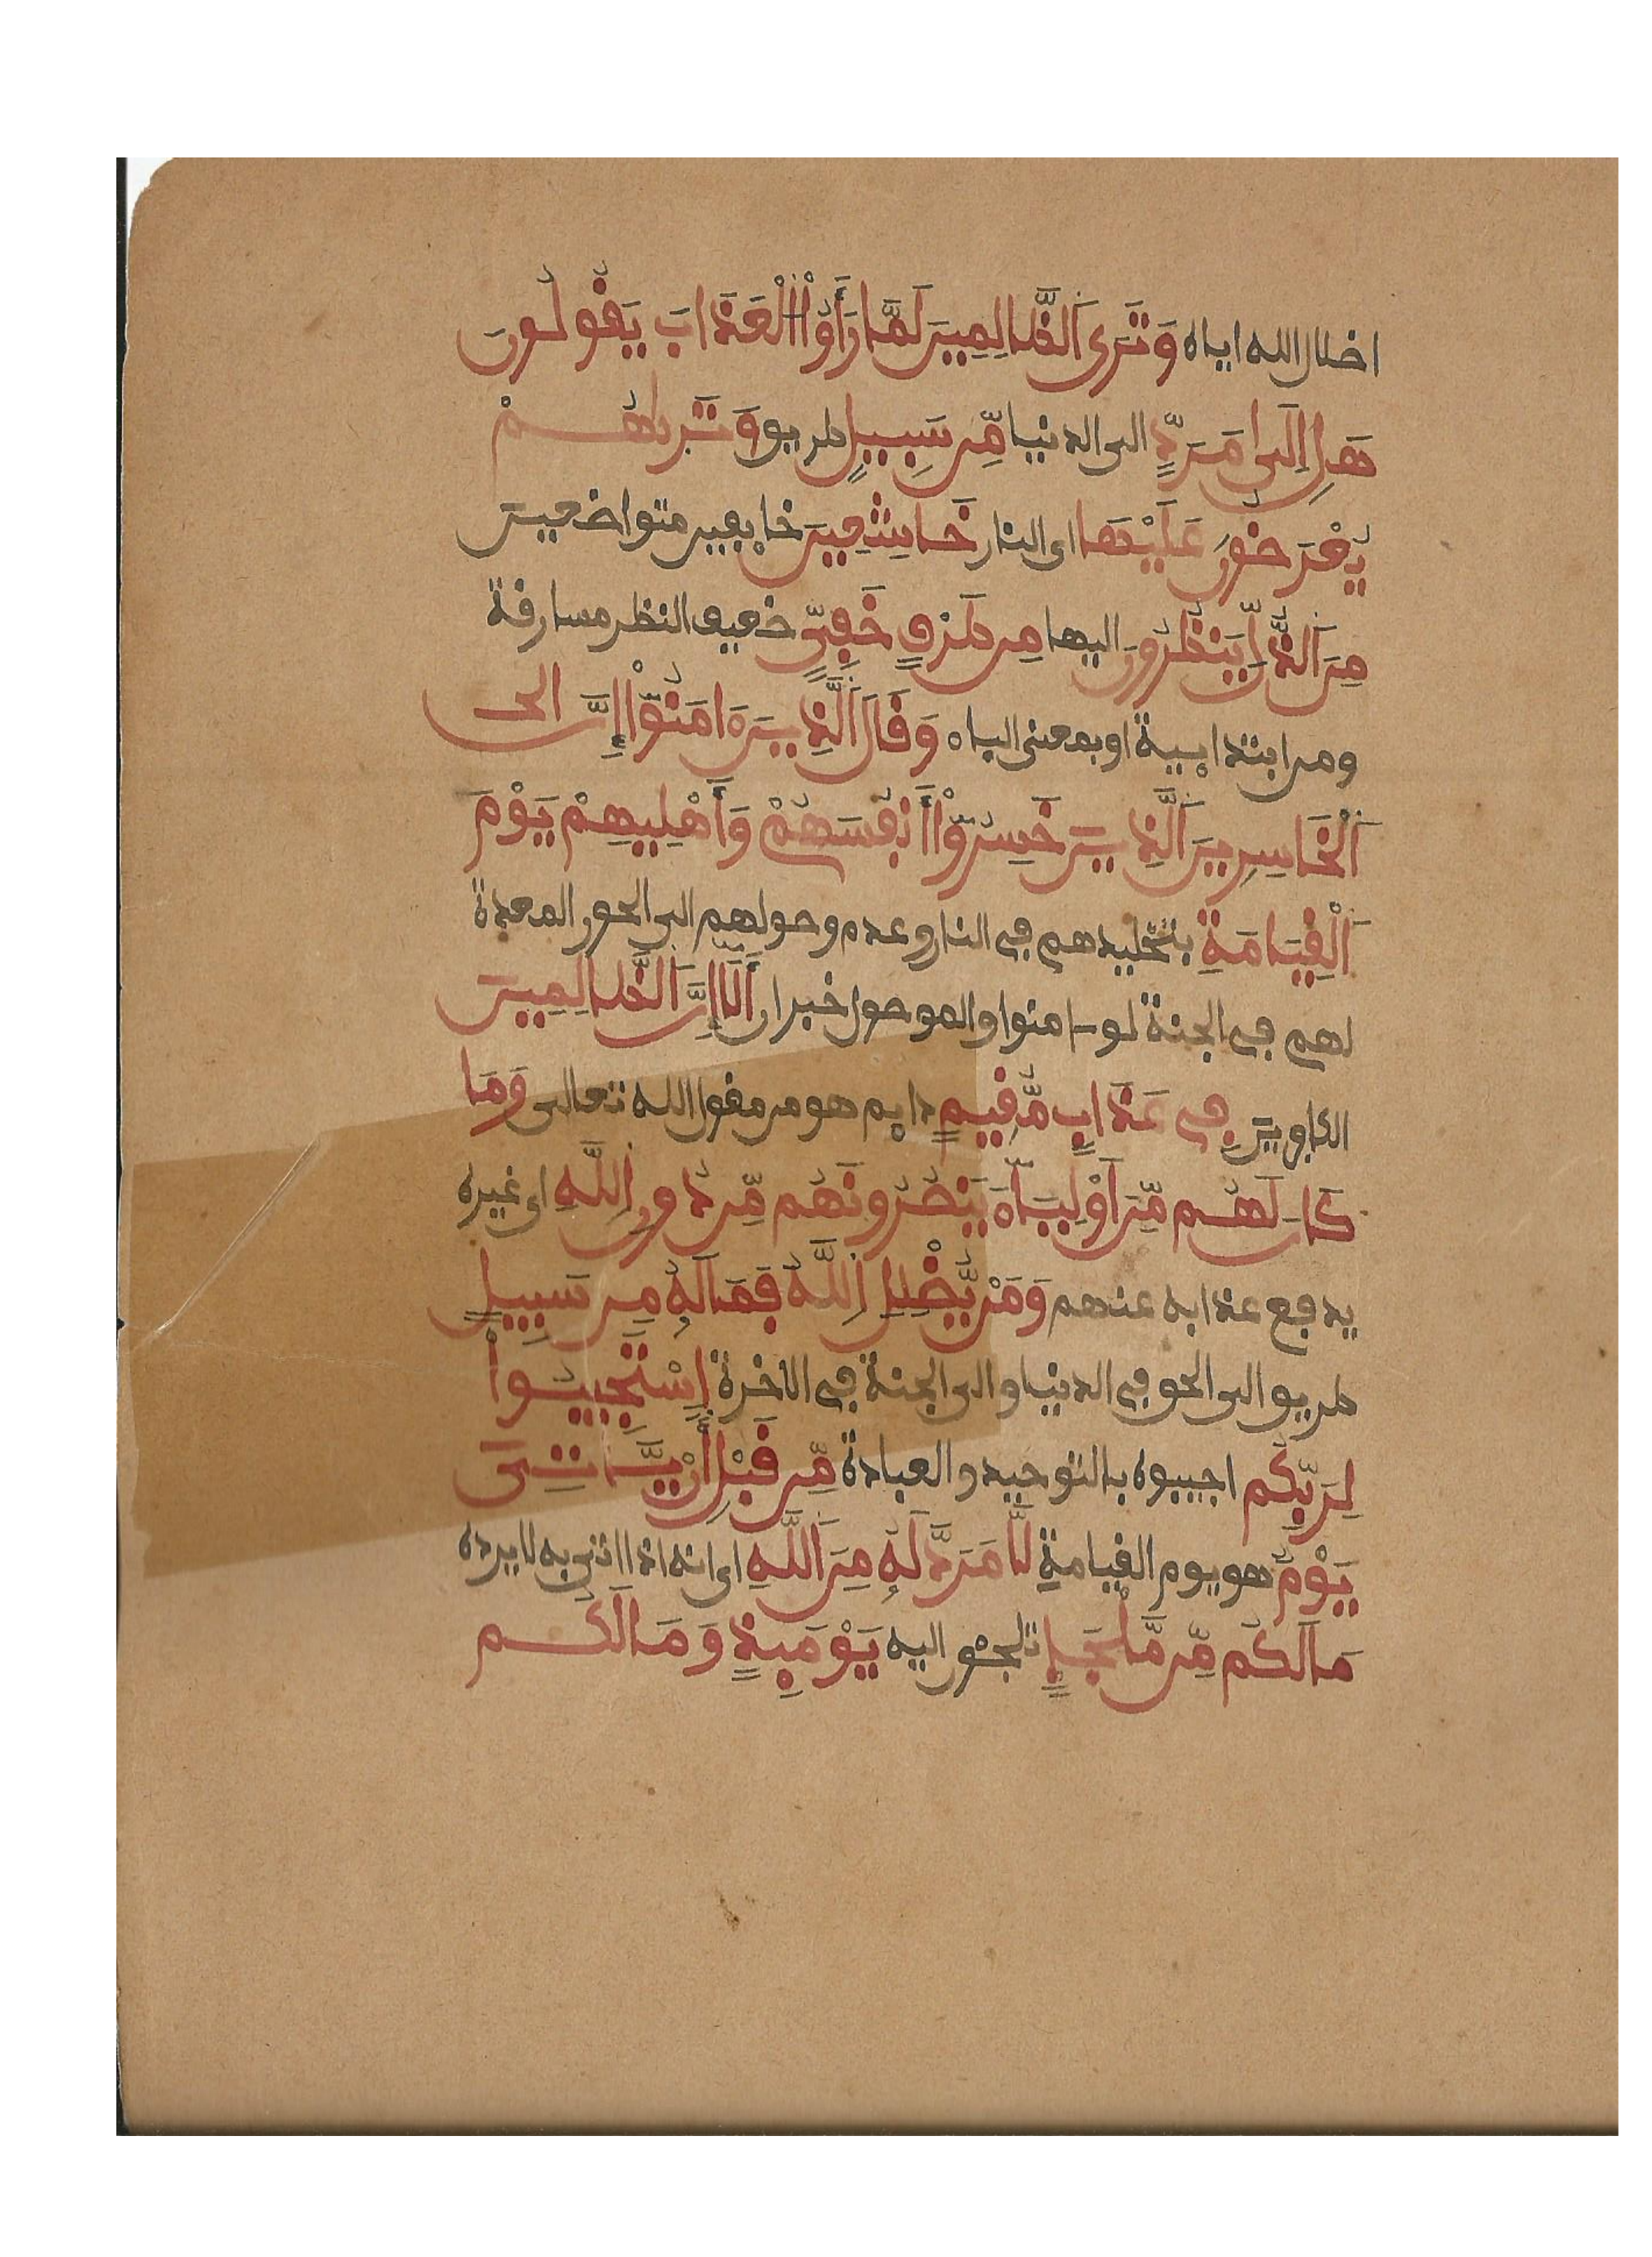 اضلال الله اياه وَتَرَى اَلظَّالِمِينَ لَمَّا رَأَوُاْ اُلْعَذَابَ يَقُولُونَ
هَلِ اِلَىٰ مَرَدٍّ الى الدنيا مِّن سَبِيلٍ طريق وَتَرَىٰهُمْ
يُعْرَضُونَ عَلَيْهَا اى النار خَاشِعِينَ خايفين متواضعين
مِنَ اَلذُّلِّ يَنظُرُونَ اليها مِن طَرْفٍ خَفِىٍّ ضعيف النظر مسارقة
ومن ابتدايية او بمعنى الباء وَقَالَ اَلَّذِينَ ءَامَنُوٓاْ إِنَّ
اَلْخَاسِرِينَ اَلَّذِينَ خَسِرُوٓاْ أَنفُسَهُمْ وَأَهْلِيهِمْ يَوْمَ
اَلْقِيَامَةِ بتخليدهم فى النار وعدم وصولهم الى الحور المعدة
لهم فى الجنة لو ءامنوا والموصول خبر ان أَلَآ إِنَّ اَلظَّالِمِينَ
الكافرين فِى عَذَابٍ مُّقِيمٍ دايم هو من مقول الله تعالى وَمَا
كَانَ لَهُم مِّنَ اَوْلِيَآءَ يَنصُرُونَهُم مِّن دُونِ اِللَّهِ اى غيره
يدفع عذابه عنهم وَمَنْ يُّضْلِلِ اِللَّهُ فَمَا لَهُۥ مِن سَبِيلٍ
طريق الى الحق فى الدنيا والى الجنة فى الاخرة اِسْتَجِيبُواْ
لِرَبِّكُم اجيبوه بالتوحيد والعبادة مِّن قَبْلِ أَنْ يَّاتِىَ
يَوْمٌ هو يوم القيامة لَّا مَرَدَّ لَهُۥ مِنَ اَللَّهِ اى انه اذا اتى به لا يرده
مَا لَكُم مِّن مَّلْجَإٍ تلجئون اليه يَوْمَئِذٍ وَمَا لَكُم